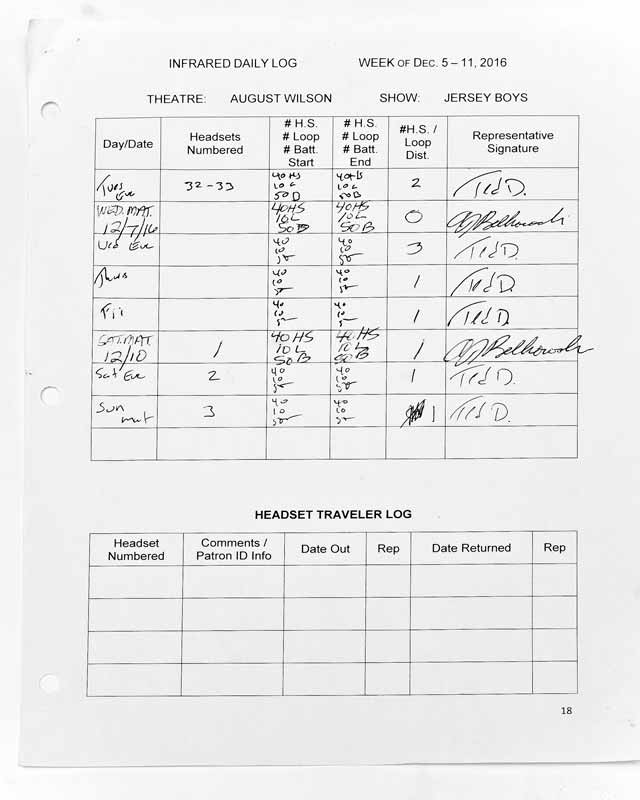 INFRARED DAILY LOG WEEK OF DEC. 5 – 11, 2016
THEATRE: AUGUST WILSON SHOW: JERSEY BOYS
Day/Date
Headsets
Numbered
# H.S.
# Loop
# Batt.
Start
# H.S.
# Loop
# Batt.
End
#H.S. /
Loop
Dist.
Representative
Signature
Tues
Eve
32-33
40HS
10L
50B
40HS
10L
50B
2
Ted D.
WED. MAT.
12/7/16
40HS
10L
50B
40HS
10L
50B
0
Wed Eve
40
10
50
40
10
50
3
Ted D.
Thurs
40
10
50
40
10
50
1
Ted D.
Fri
40
10
50
40
10
50
1
Ted D.
SAT. MAT.
12/10
1
40 HS
10 L
50B
40 HS
10 L
50B
1
Sat Eve
2
40
10
50
40
10
50
1
Ted D.
Sun
mat
3
40
10
50
40
10
50
1
Ted D.
HEADSET TRAVELER LOG
Headset
Numbered
Comments /
Patron ID Info
Date Out
Rep
Date Returned
Rep
18